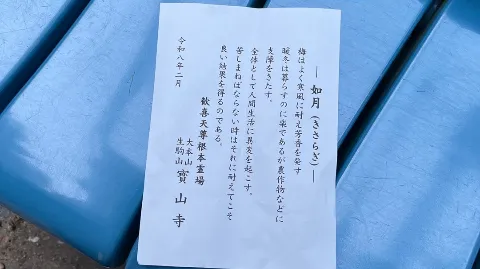 ― 如月(きさらぎ)―
梅はよく寒風に耐え芳香を発す
暖冬は暮らすのに楽であるが農作物などに
支障をきたす。
全体として人間生活に異変を起こす。
苦しまねばならない時はそれに耐えてこそ
良い効果を得るのである。
歓喜天尊根本霊場
大本山
生駒山
寳山寺
令和八年二月